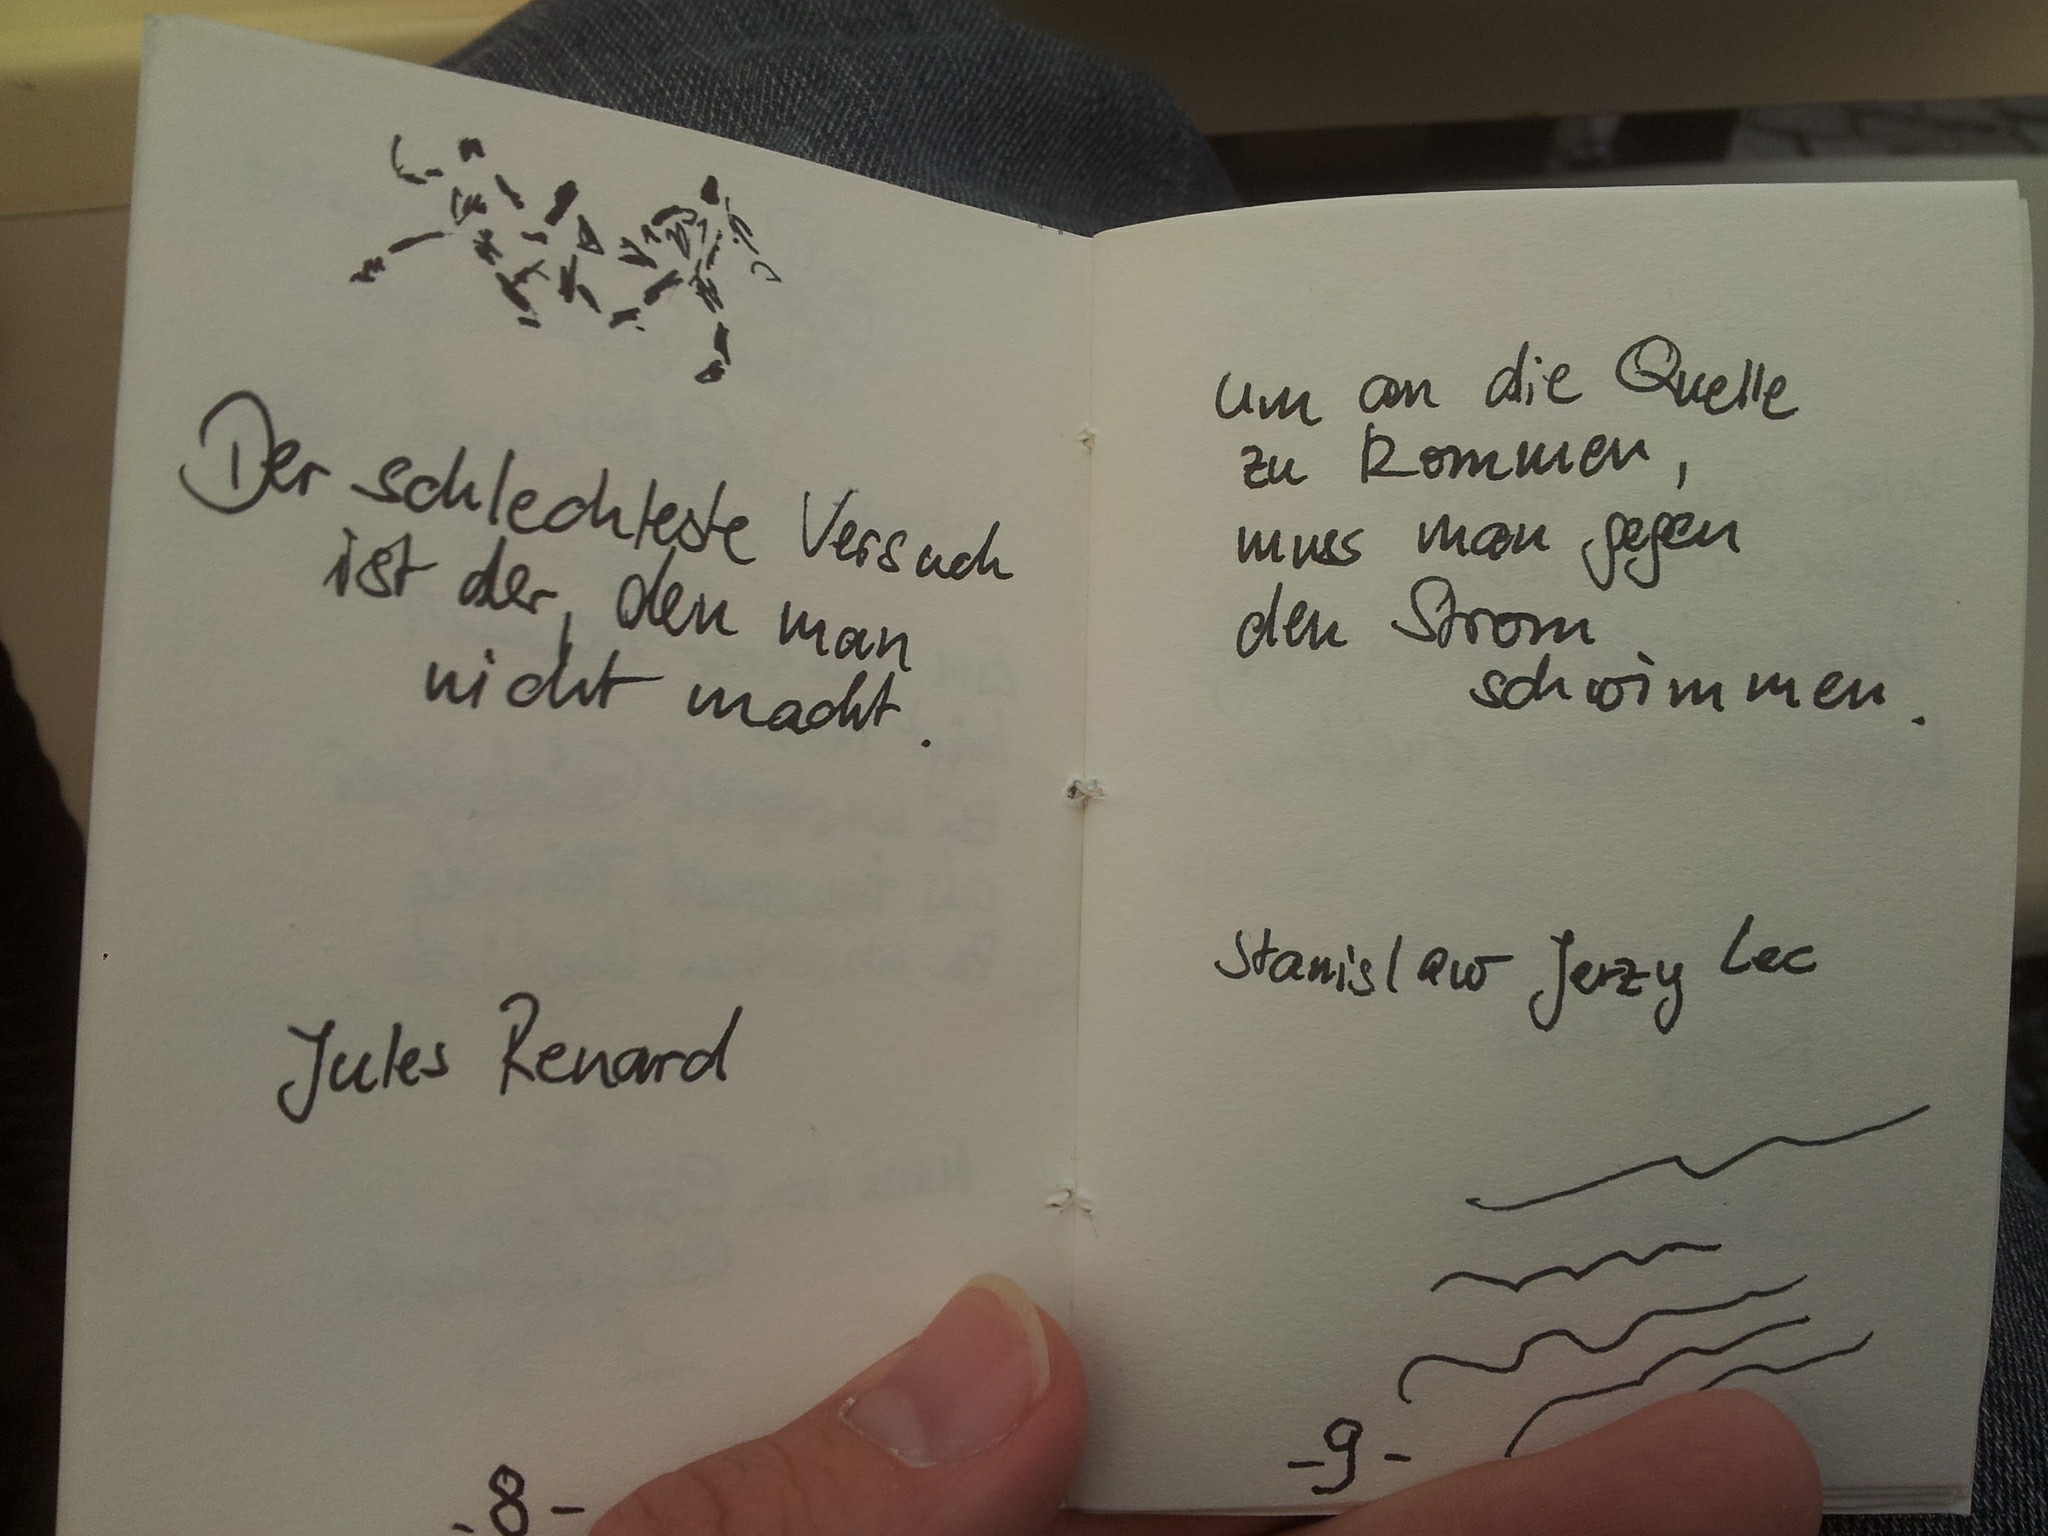 Der schlechteste Versuch
ist der, den man
nicht macht.
Jules Renard
-8-
um an die Quelle
zu kommen,
muss man gegen
den Strom
schwimmen.
Stanislaw Jerzy Lec
-9-